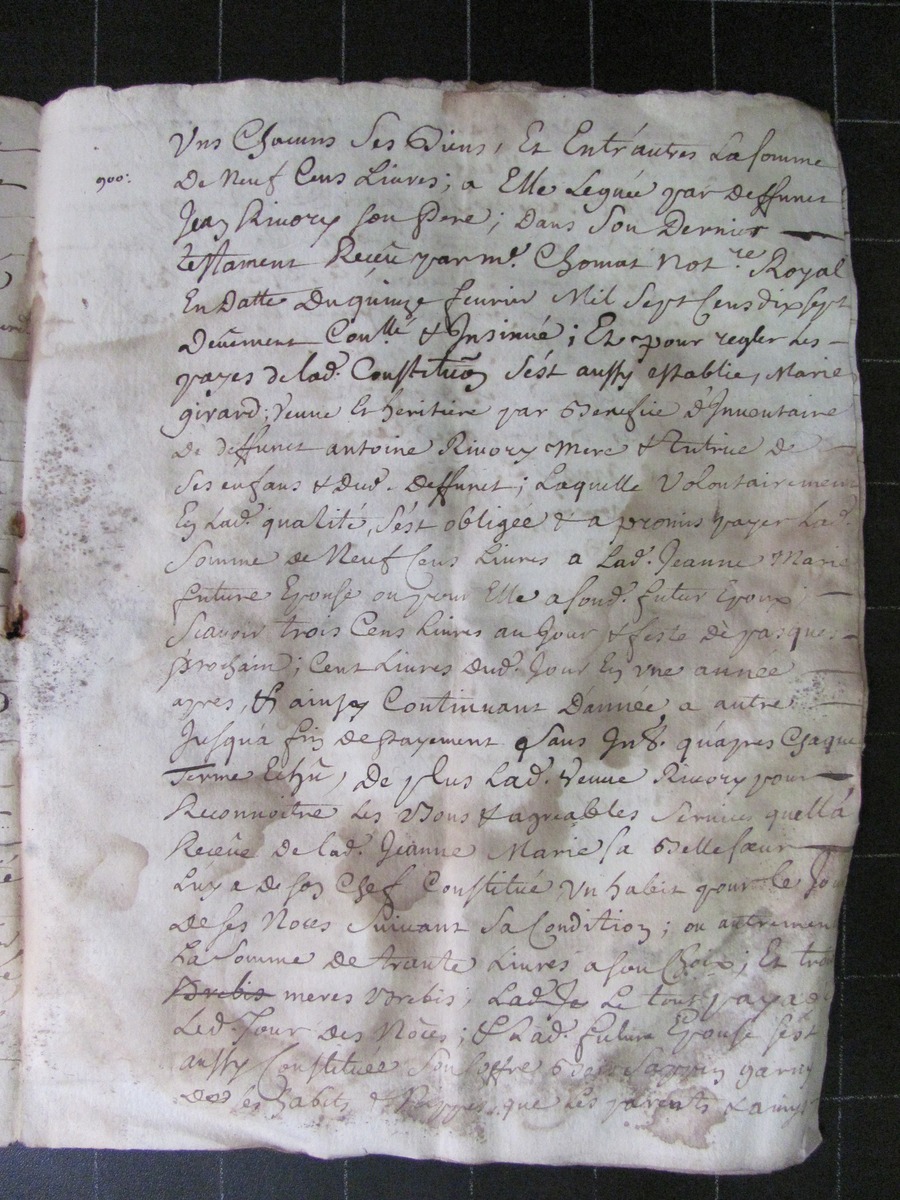 Uns Chacuns Ses Biens, Et Entr'autres La somme
900:
De Neuf Cens Livres; a Elle Leguée par deffunct
Jean Rivory son Pere; Dans Son Dernier
testament Receu par me. Chomat Notre. Royal
En Datte Du quinze fevrier Mil Sept Cens dix sept
Deuement Conllé & Insinué; Et pour regler Les
payes de lad. Constituõn S'est aussy establie, Marie
girard; veuve Et heritière par Benefice d'Inventaire
De deffunct antoine Rivory Mere & Tutrice de
Ses enfans & dud. Deffunct; Laquelle Volontairement
En Lad. qualité, S'est obligée & a promis payer Lad.
Somme de Neuf Cens Livres a Lad. Jeanne Marie
future Epouse ou pour Elle a sond. futur Epoux
Scavoir trois Cens Livres au Jour & feste de pasques
prochain; Cent Livres dud. Jour En une année
apres, & ainsy Continuant D'année a autre
Jusqu'a fin de payement Sans Int. qu'apres Chaque
Terme Echu, De plus Lad. Veuve Rivory pour
Reconnoitre Les Bons & agreables Services quella
Receue de lad. Jeanne Marie sa Belle sœur
Luy a de son Chef Constitué Un habit pour le Jou
de ses Noces Suivant Sa Condition; ou autremen
La Somme de trante Livres a son Choix; Et troi
Brebis meres brebis, Le tout payad
Led. Jour des Nôces; & Lad. future Epouse s'est
aussy Constituée Son coffre Bois Sappin garny
de ses habits & Nippes que Les parents & amys